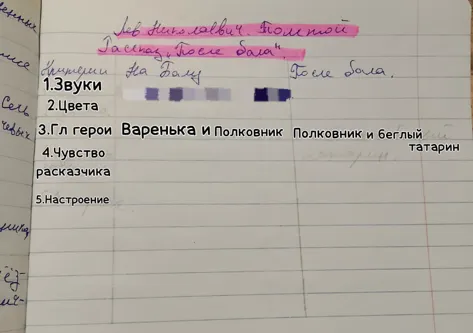 Лев Николаевич. Толстой
Рассказ „После бала".
Критерии На Балу После бала.
1.Звуки
2.Цвета
3.Гл герои Варенька и Полковник Полковник и беглый татарин
4.Чувство
расказчика
5.Настроение